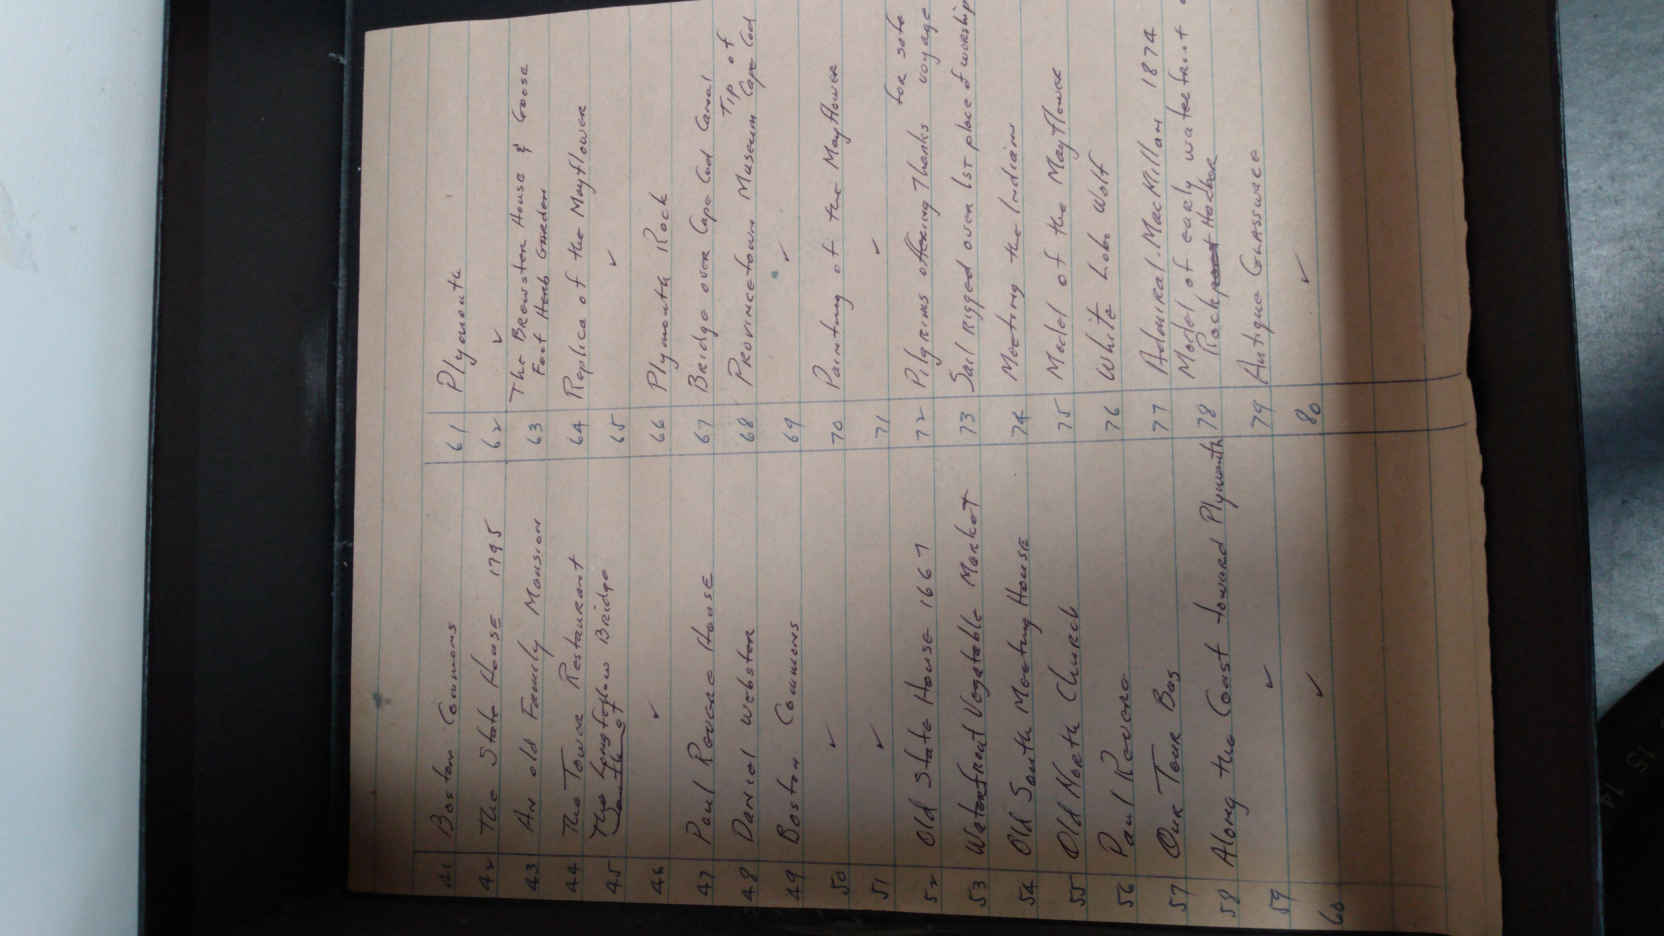 41 Boston Commons
42 The State House 1795
43 An old Family Mansion
44 The Tower Restaurant
45 The Longfellow Bridge
46 ✓
47 Paul Revere House
48 Daniel Webster
49 Boston Commons
50 ✓
51 ✓
52 Old State House 1667
53 Waterfront Vegetable Market
54 Old South Meeting House
55 Old North Church
56 Paul Revere
57 Our Tour Bus
58 Along the Coast toward Plymouth
59 ✓
60 ✓
61 Plymouth
62 ✓
63 The Brewster House & Goose
Feet Herb Garden
64 Replica of the Mayflower
65 ✓
66 Plymouth Rock
67 Bridge over Cape Cod Canal
Tip of
68 Provincetown Museum Cape Cod
69 ✓
70 Painting of the Mayflower
71 ✓
for safe
72 Pilgrims offering Thanks voyage
73 Sail rigged over 1st place of worship
74 Meeting the Indians
75 Model of the Mayflower
76 White Lobo Wolf
77 Admiral MacMillan 1874
78 Model of early waterfront
Harbor
79 Antique Glassware
80 ✓
15
14